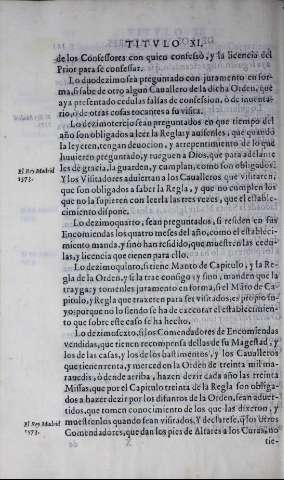 TITVLO XI.
de los Confessores con quien confessò, y la licencia del
Prior para se confessar.
Lo duodezimo seà preguntado con juramento en for-
ma, si sabe de otro algun Cauallero de la dicha Orden, que
aya presentado cedulas falsas de confession, ò de inuenta-
rio, ò de otras cosas tocantes a su visita.
Lo dezimotercio sean preguntados en que tiempo del
año son obligados a leer la Regla: y auisenles, que quando
la leyeren, tengan deuocion, y arrepentimiento de lo que
huuieren preguntado, y rueguen a Dios, que para adelante
les dè gracia, la guarden, y cumplan, como son obligados.
El Rey Madrid
1573.
Y los Visitadores aduiertan a los Caualleros que visitaren,
que son obligados a saber la Regla, y que no cumplen los
que no la supieren con leerla las tres vezes, que el estable-
cimiento dispone.
Lo dezimoquarto, sean preguntados, si residen en sus
Encomiendas los quatro meses del año, como el estableci-
miento manda, y sino han residido, que muestren las cedu-
las, y licencia que tienen para ello.
Lo dezimoquinto, si tiene Manto de Capitulo, y la Re-
gla de la Orden, y si la trae consigo y sino, manden que la
trayga: y tomenles juramento en forma, si el Mãto de Ca-
pitulo, y Regla que traxeren para ser visitados, es propio su-
yo: porque no lo siendo se ha de executar el establecimien-
to que sobre este caso se ha hecho.
Lo dezimosexto, si los Comendadores de Encomiendas
vendidas, que tienen recompensa dellas de su Magestad, y
los de las casas, y los de los bastimentos, y los Caualleros
que tienen renta, y merced en la Orden de treinta mil ma-
rauedis, ò dende arriba, hazen dezir cada año las treinta
Missas, que por el Capitulo treinta de la Regla son obliga-
dos a hazer dezir por los difuntos de la Orden, sean aduer-
tidos, que tomen conocimiento de los que las dixeron, y
El Rey Madrid
1573.
muestrenlos quando sean visitados. Y declarese, q̃ los otros
Comendadores, que dan los pies de Altares a los Curas, no
tie-